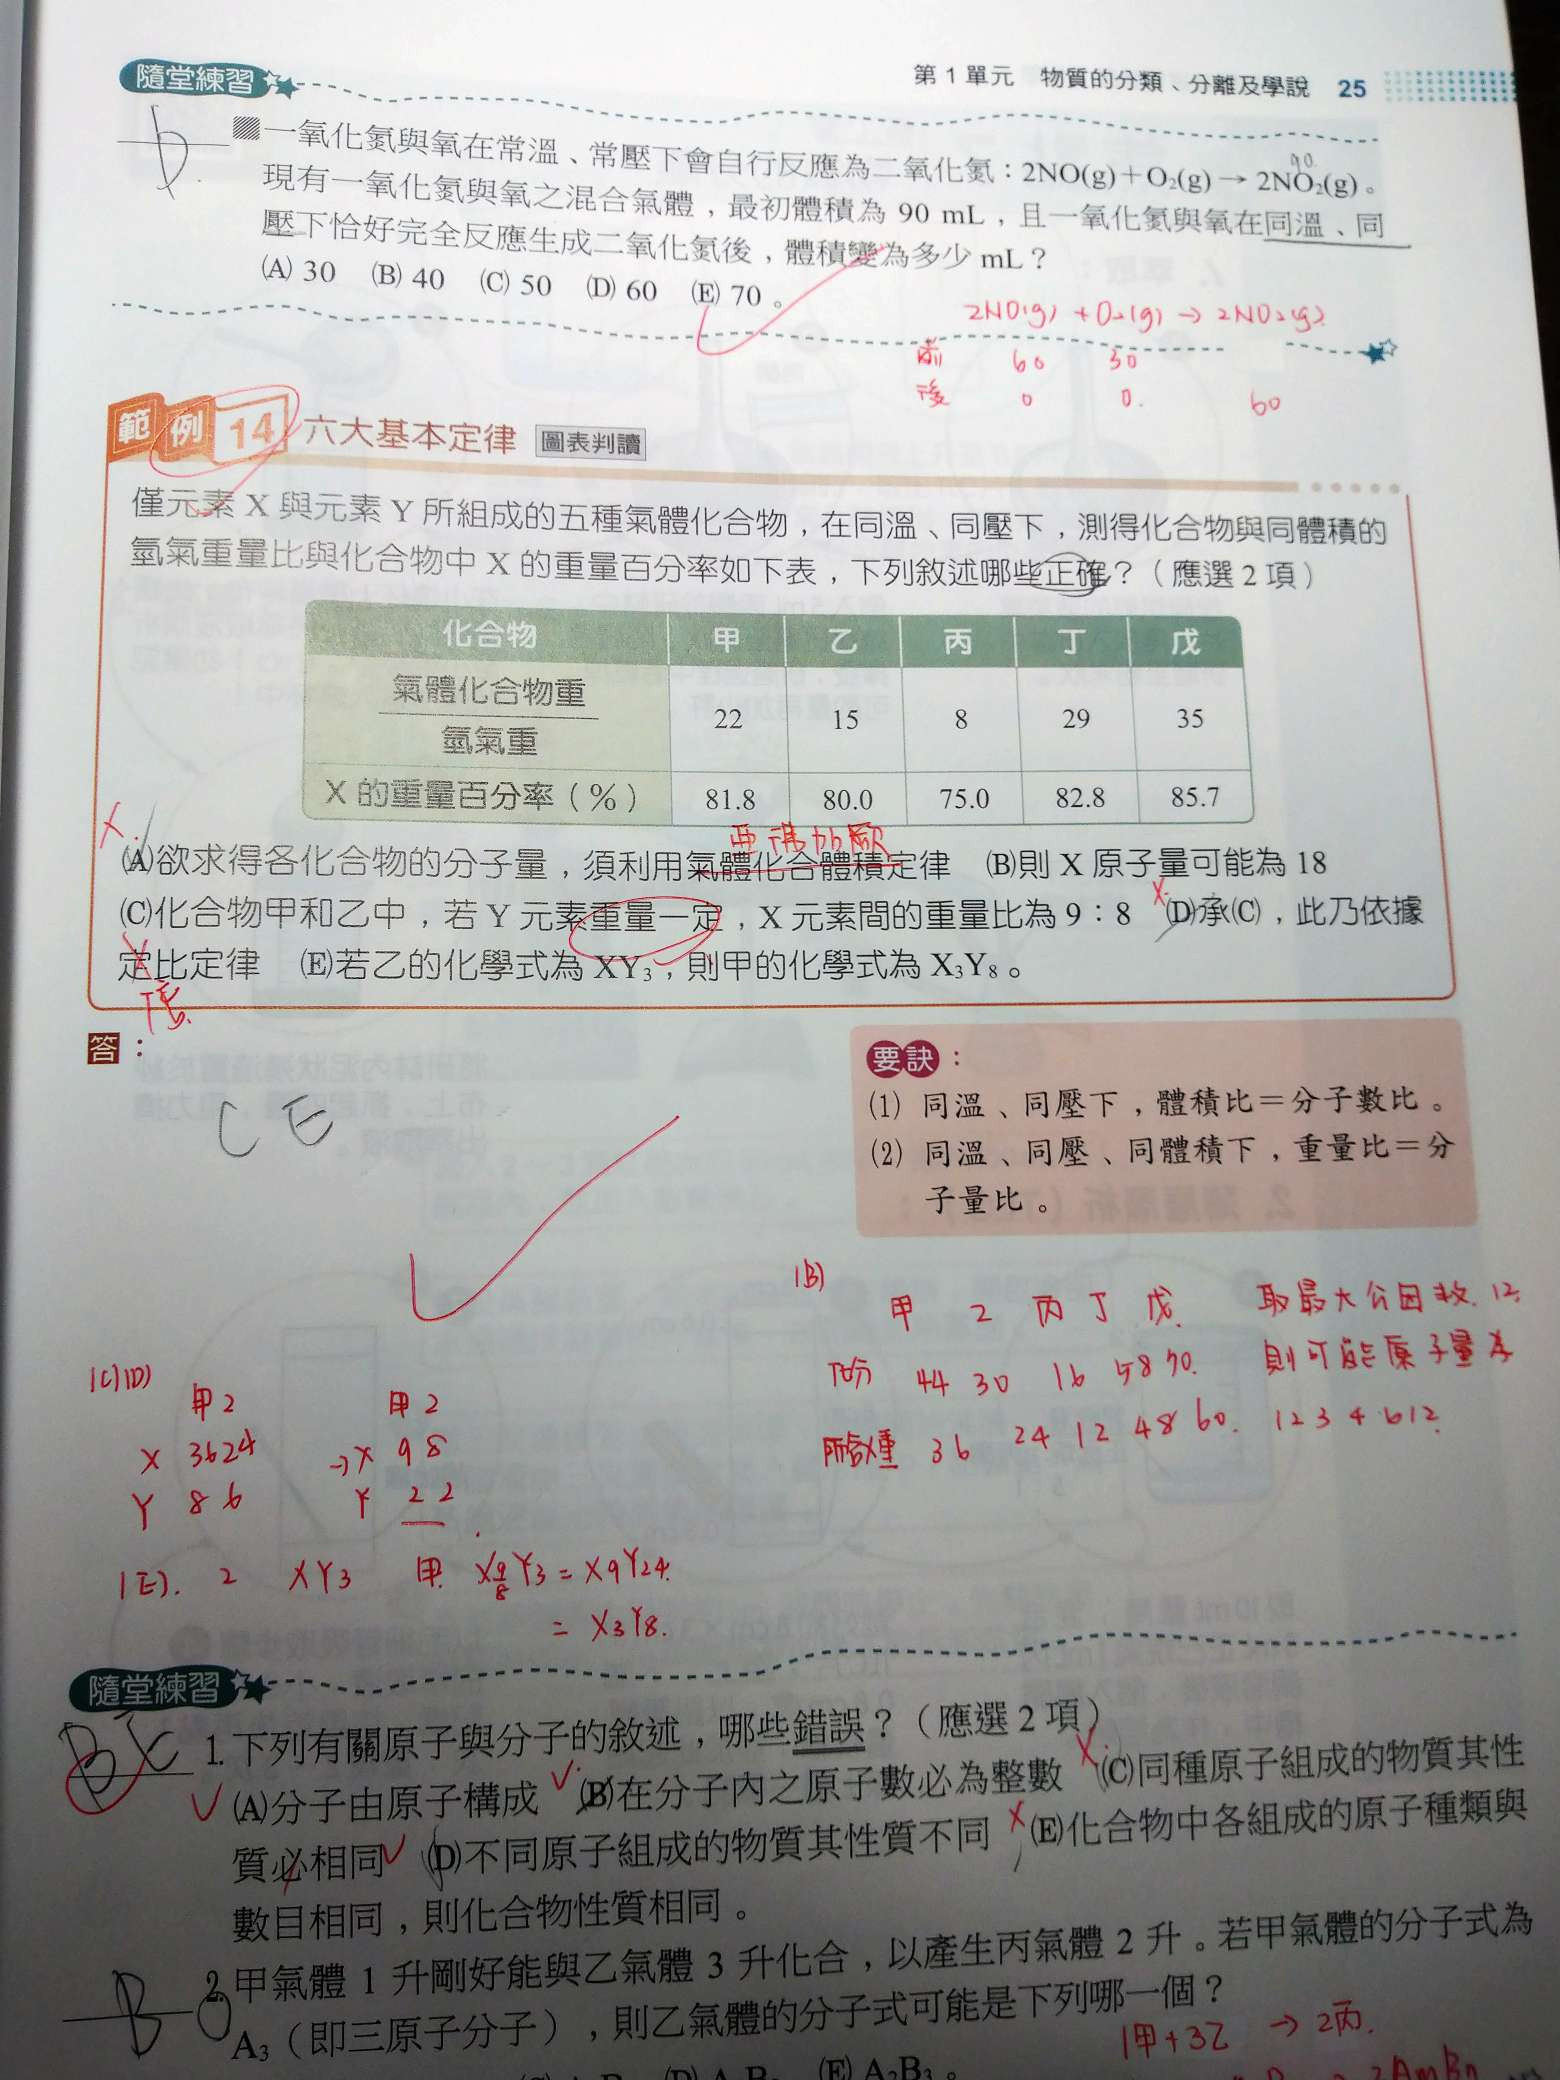 隨堂練習
第 1 單元　物質的分類、分離及學說　25
D.
一氧化氮與氧在常溫、常壓下會自行反應為二氧化氮：2NO(g)＋O₂(g)→ 2NO₂(g)。
90
現有一氧化氮與氧之混合氣體，最初體積為 90 mL，且一氧化氮與氧在同溫、同
壓下恰好完全反應生成二氧化氮後，體積變為多少 mL？
(A) 30　(B) 40　(C) 50　(D) 60　(E) 70。
2NO(g) + O₂(g) → 2NO₂(g)
前　60　30
後　0　0.　60
範例 14　六大基本定律　圖表判讀
僅元素 X 與元素 Y 所組成的五種氣體化合物，在同溫、同壓下，測得化合物與同體積的
氫氣重量比與化合物中 X 的重量百分率如下表，下列敘述哪些正確？（應選 2 項）
化合物　甲　乙　丙　丁　戊
氣體化合物重
氫氣重
22　15　8　29　35
X 的重量百分率（%）　81.8　80.0　75.0　82.8　85.7
亞佛加厥
X.
(A)欲求得各化合物的分子量，須利用氣體化合體積定律　(B)則 X 原子量可能為 18
(C)化合物甲和乙中，若 Y 元素重量一定，X 元素間的重量比為 9：8　X.(D)承(C)，此乃依據
定比定律　(E)若乙的化學式為 XY₃，則甲的化學式為 X₃Y₈。
倍
答：
C E
要訣：
(1) 同溫、同壓下，體積比＝分子數比。
(2) 同溫、同壓、同體積下，重量比＝分
子量比。
(B)
甲　乙　丙　丁　戊.　取最大公因數. 12
44　30　16　58　70.　則可能原子量為
36　24　12　48　60.　1 2 3 4 6 12.
(C)(D)
甲 乙　甲 乙
X 36 24 → X 9 8
Y 8 6　Y 2 2
(E).　乙　XY₃　甲　X9/8Y₃ = X₉Y₂₄.
= X₃Y₈.
隨堂練習
1. 下列有關原子與分子的敘述，哪些錯誤？（應選 2 項）
(A)分子由原子構成　(B)在分子內之原子數必為整數　X.(C)同種原子組成的物質其性
質必相同　(D)不同原子組成的物質其性質不同　X(E)化合物中各組成的原子種類與
數目相同，則化合物性質相同。
B
2. 甲氣體 1 升剛好能與乙氣體 3 升化合，以產生丙氣體 2 升。若甲氣體的分子式為
A₃（即三原子分子），則乙氣體的分子式可能是下列哪一個？
1甲+3乙 → 2丙.
(E) A₂B₃。